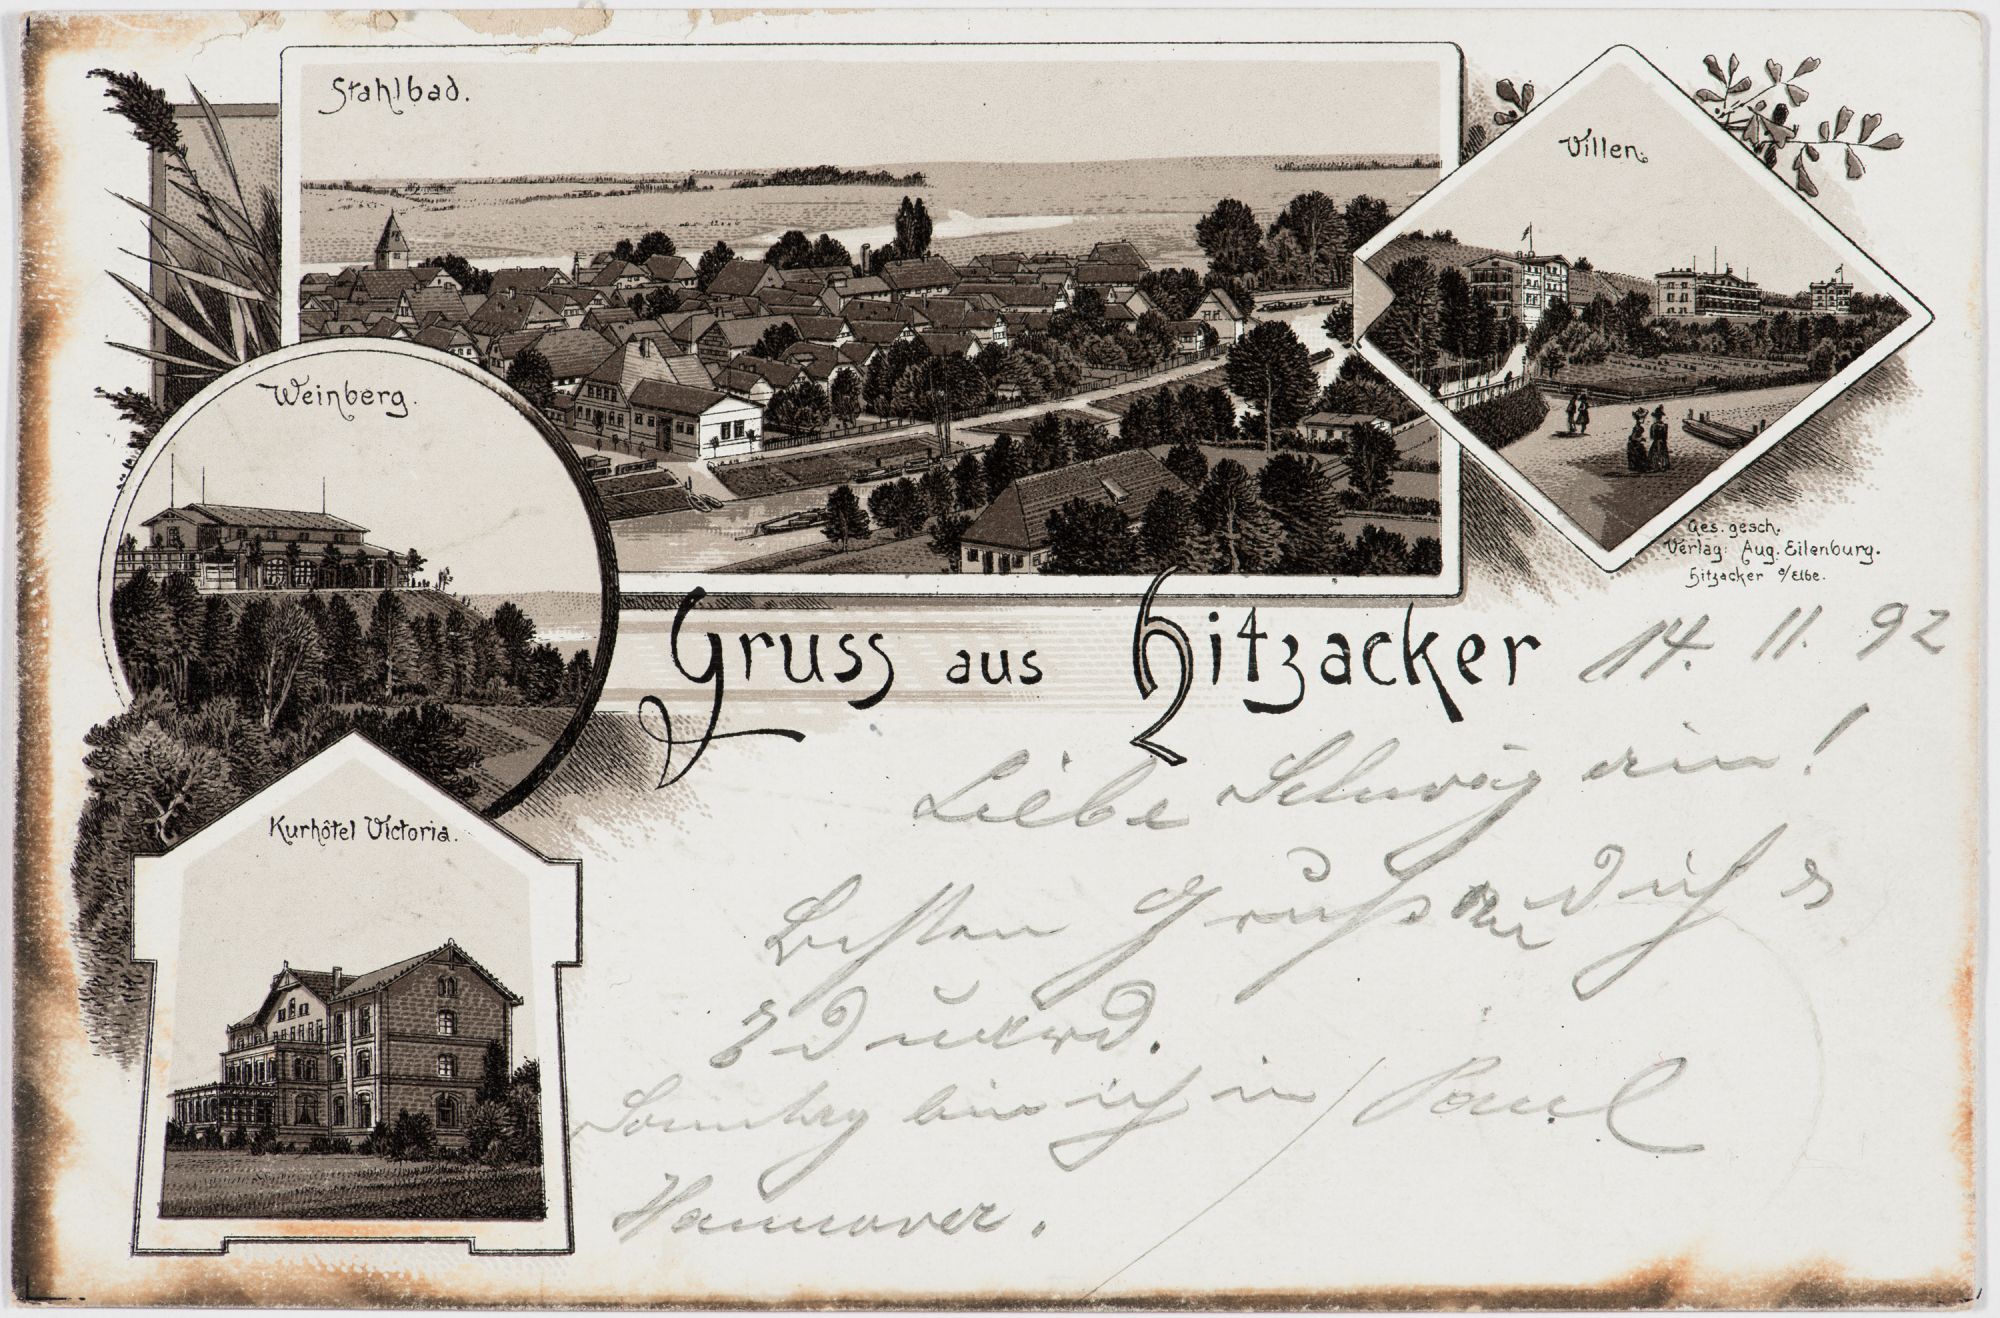 Stahlbad.
Villen.
Weinberg.
Ges. gesch.
Verlag: Aug. Eilenburg.
Hitzacker a/Elbe.
Gruss aus Hitzacker
14. 11. 92
Liebe Schwägerin!
Besten Gruß Dich
Eduard.
Sonntag bin ich in / Paul
Hannover.
Kurhôtel Victoria.